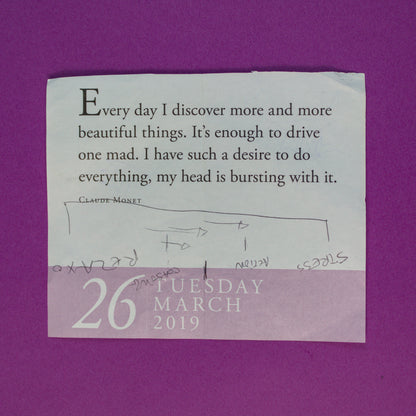 Every day I discover more and more
beautiful things. It’s enough to drive
one mad. I have such a desire to do
everything, my head is bursting with it.
Claude Monet
STRESS
ACTION
RELAX
26
TUESDAY
MARCH
2019